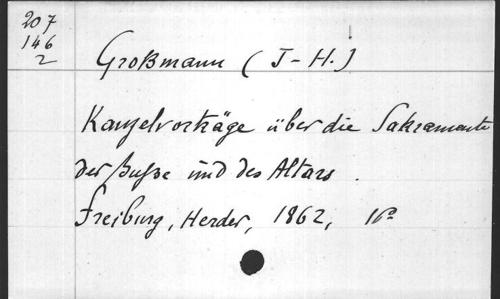 207
146
2
Großmann (J-H.)
Kanzelvorträge über die Sakramente
der Buße und des Altars.
Freiburg, Herder, 1862, 16°